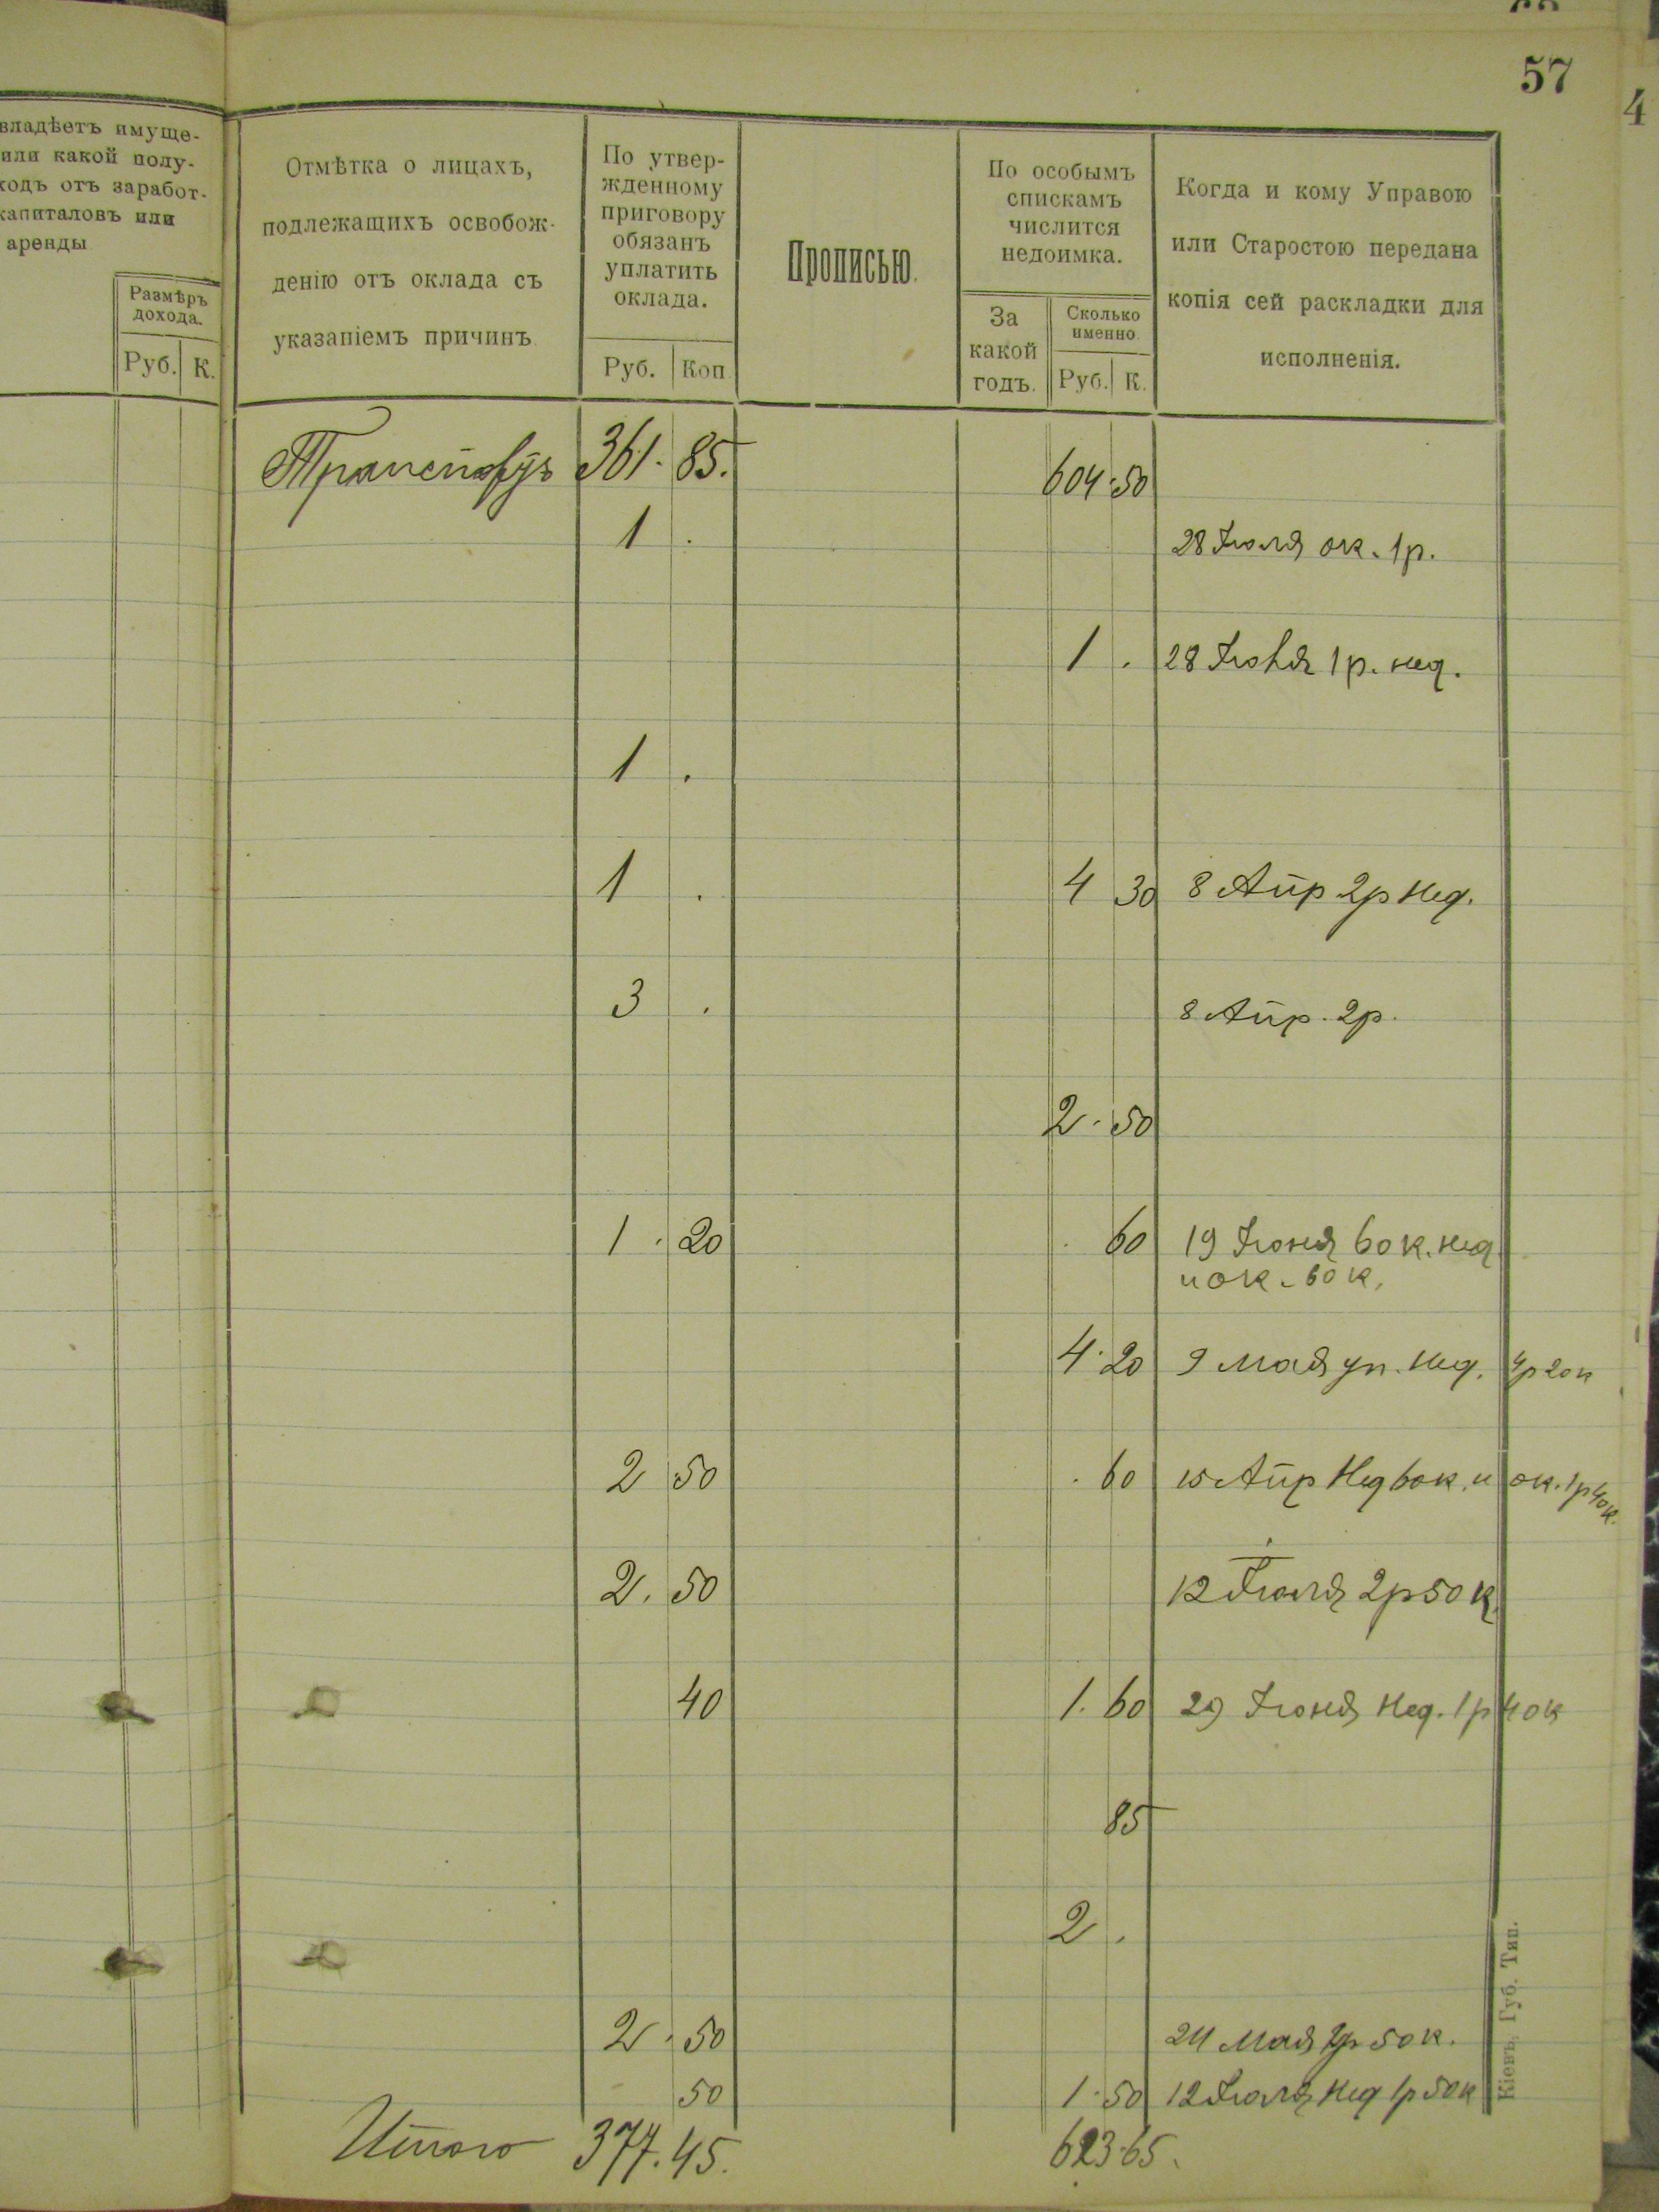 57
4
владѣетъ имуще-
или какой полу-
ходъ отъ заработ-
капиталовъ или
аренды
Размѣръ
дохода.
Руб. К.
Отмѣтка о лицахъ,
подлежащихъ освобож-
денію отъ оклада съ
указаніемъ причинъ
По утвер-
жденному
приговору
обязанъ
уплатить
оклада.
Руб. Коп.
Прописью.
По особымъ
спискамъ
числится
недоимка.
За
какой
годъ.
Сколько
именно
Руб. К.
Когда и кому Управою
или Старостою передана
копія сей раскладки для
исполненія.
Транспортъ 361. 85. 604.50
1 . 28 Іюля ок. 1 р.
1 . 28 Іюня 1 р. нед.
1 .
1 . 4 30 8 Апр 2р Нед.
3 . 8 Апр. 2р.
2.50
1.20 . 60 19 Іюня 60 к. нед.
и ок. 60 к,
4.20 9 Мая уп. Нед. 4р 20к
2 50 . 60 15 Апр Нед 60к. и ок. 1р 40к.
2.50 12 Іюля 2р 50 к.
40 1.60 29 Іюня Нед. 1р 40к
85
2 .
2.50 24 Мая 2р 50к.
50 1.50 12 Іюля Нед 1р 50к
Итого 377.45. 623.65.
Кіевъ, Губ. Тип.